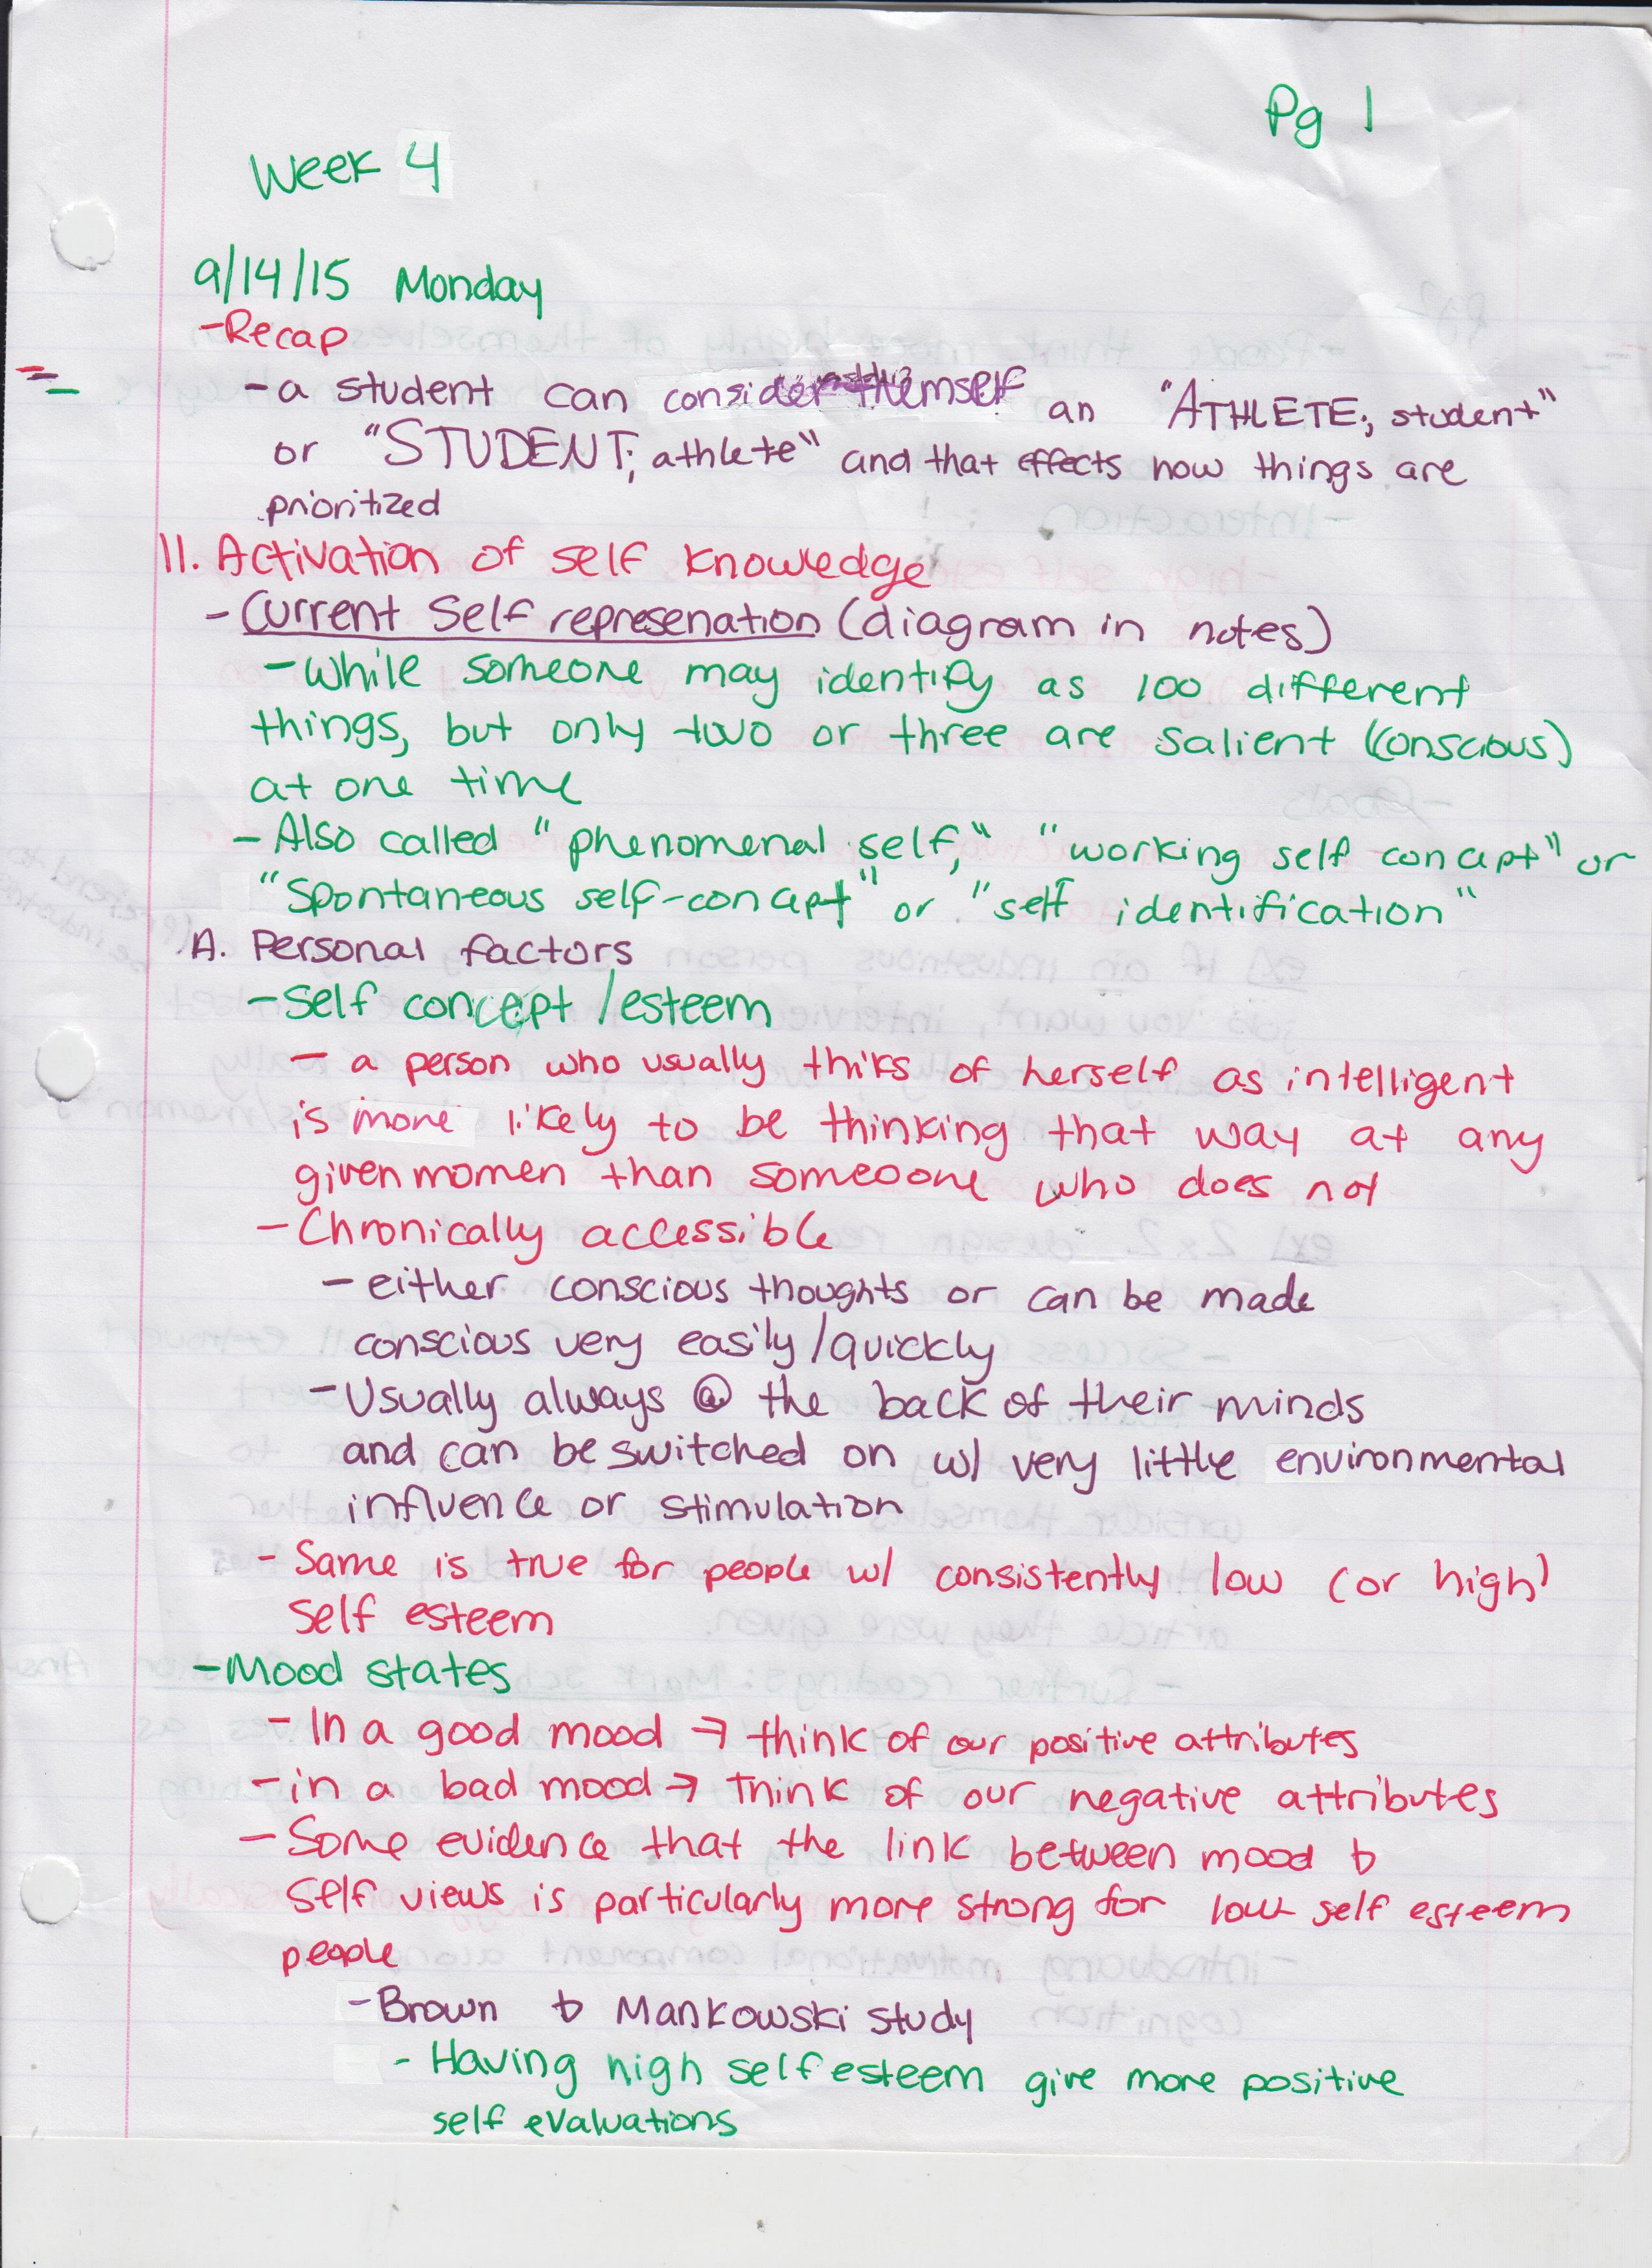 Pg 1
Week 4
9/14/15 Monday
-Recap
- a student can consider themself an "ATHLETE; student"
or "STUDENT; athlete" and that effects how things are
prioritized
II. Activation of self knowledge
- Current Self represenation (diagram in notes)
- While someone may identify as 100 different
things, but only two or three are salient (conscious)
at one time
- Also called "phenomenal self," "working self concept" or
"Spontaneous self-concept" or "self identification"
A. Personal factors
- Self concept /esteem
- a person who usually thiks of herself as intelligent
is more likely to be thinking that way at any
given momen than someoone who does not
- Chronically accessible
- either conscious thoughts or can be made
conscious very easily/quickly
- Usually always @ the back of their minds
and can be switched on w/ very little environmental
influence or stimulation
- Same is true for people w/ consistently low (or high)
self esteem
- Mood states
- In a good mood → think of our positive attributes
- in a bad mood → think of our negative attributes
- Some evidence that the link between mood &
self views is particularly more strong for low self esteem
people
- Brown & Mankowski study
- Having high self esteem give more positive
self evaluations